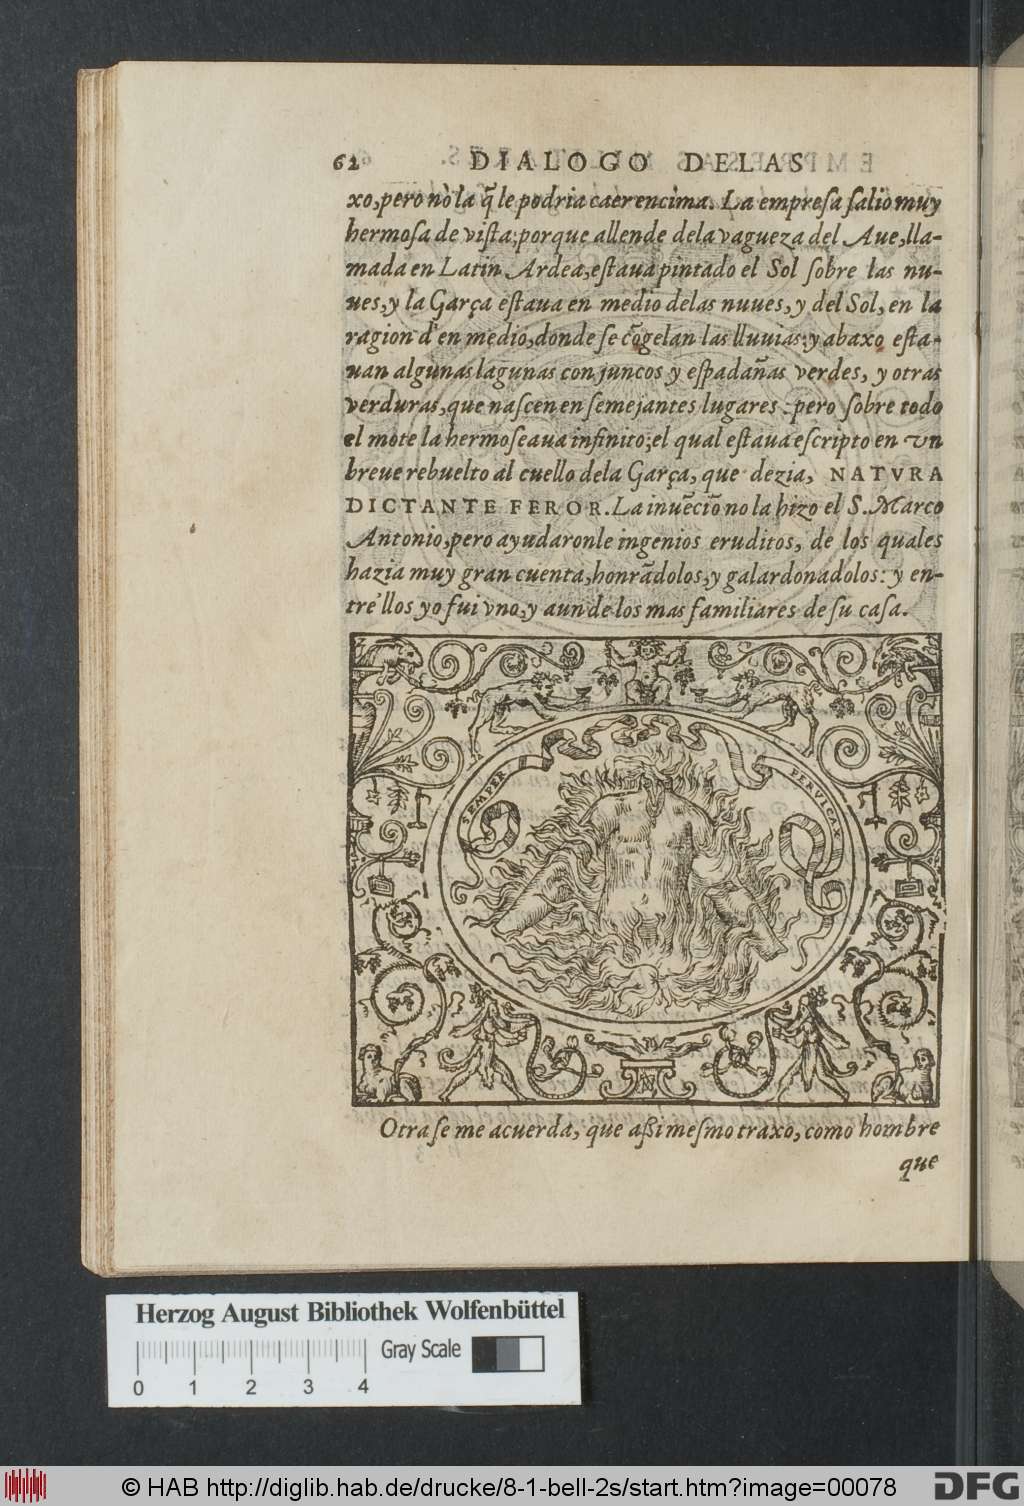 62 DIALOGO DE LAS
xo, pero nò la q̃ le podria caer encima. La empreſa ſaliò muy
hermoſa de viſta; porque allende dela vagueza del Aue, lla-
mada en Latin Ardea, eſtaua pintado el Sol ſobre las nu-
ues, y la Garça eſtaua en medio delas nuues, y del Sol, en la
ragion d'en medio, donde ſe cõgelan las lluuias: y abaxo eſta-
uan algunas lagunas con juncos y eſpadañas verdes, y otras
verduras, que naſcen en ſemejantes lugares: pero ſobre todo
el mote la hermoſeaua infinito; el qual eſtaua eſcripto en vn
breue rebuelto al cuello dela Garça, que dezia, NATVRA
DICTANTE FEROR. La inuẽciõ no la hizo el S. Marco
Antonio, pero ayudaronle ingenios eruditos, de los quales
hazia muy gran cuenta, honrãdolos, y galardonadolos: y en-
tre'llos yo fui vno, y aun de los mas familiares de ſu caſa.
SEMPER
PERVICAX
Otra ſe me acuerda, que aßi meſmo traxo, como hombre
que
Herzog August Bibliothek Wolfenbüttel
Gray Scale
0 1 2 3 4
© HAB http://diglib.hab.de/drucke/8-1-bell-2s/start.htm?image=00078
DFG